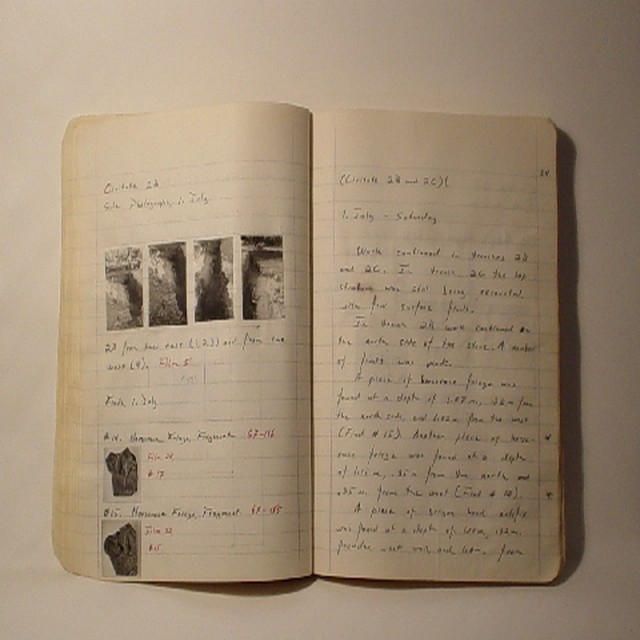 Civitate 2B
Site Photography 1. July
2B from the east (1,2,3) and from the
west (4). Film 5
Finds 1. July
#14. Horseman Frieze, Fragment 67-186
Film 24
#17
#15. Horseman Frieze, Fragment 67-185
Film 23
#15
(Civitate 2B and 2C)
1. July - Saturday
Work continued in trenches 2B
and 2C. In trench 2C the top
stratum was still being excavated
with few surface finds.
In trench 2B work continued on
the north side of the A number
of finds was made.
A piece of horseman frieze was
found at a depth of from
the north side, and from the west
(Find #15). Another piece of horse-
man frieze was found at a depth
of from the north and
.35 m. from the west (Find #14).
A piece of head antefix
was found at a depth of
from